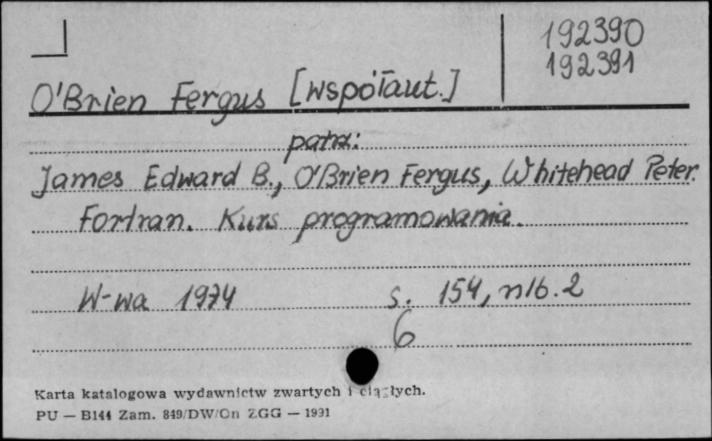 192390
192391
O'Brien Fergus [współaut.]
patrz:
James Edward B., O'Brien Fergus, Whitehead Peter.
Fortran. Kurs programowania.
W-wa 1974 s. 154, nlb. 2
6
Karta katalogowa wydawnictw zwartych i ciągłych.
PU — B144 Zam. 849/DW/Cn ZGG — 1991